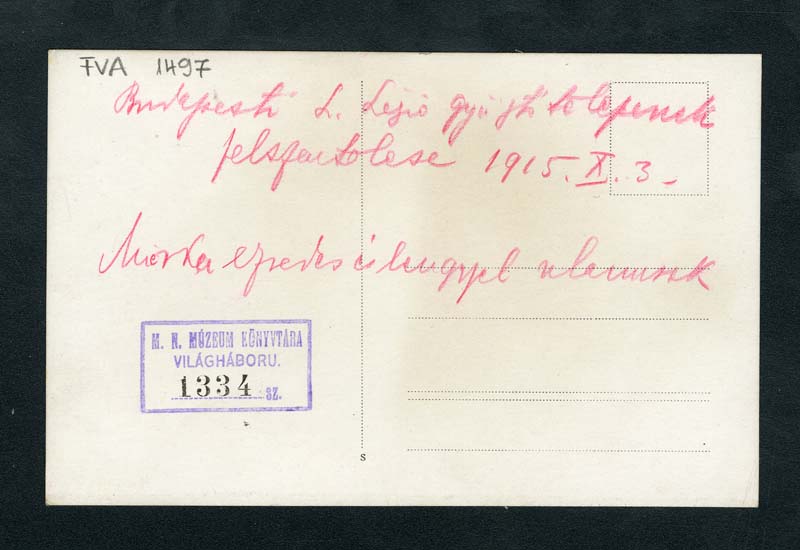 FVA 1497
Budapesti L. Légió gyűjtőtelepenek
felszentelése 1915. X. 3.
ezredes és lengyel
M. N. MÚZEUM KÖNYVTÁRA
VILÁGHÁBORU.
1334 SZ.
S